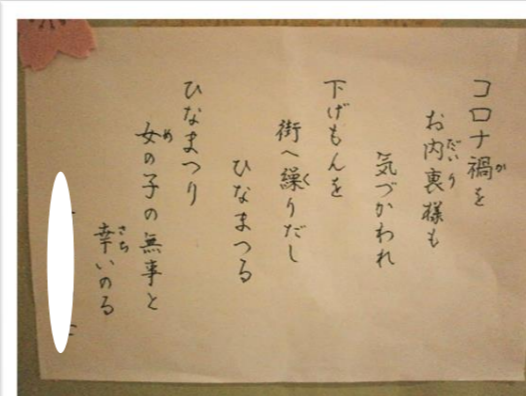 コロナ禍を
お内裏様も
気づかわれ
下げもんを
街へ繰りだし
ひなまつる
ひなまつり
女の子の無事と
幸いのる